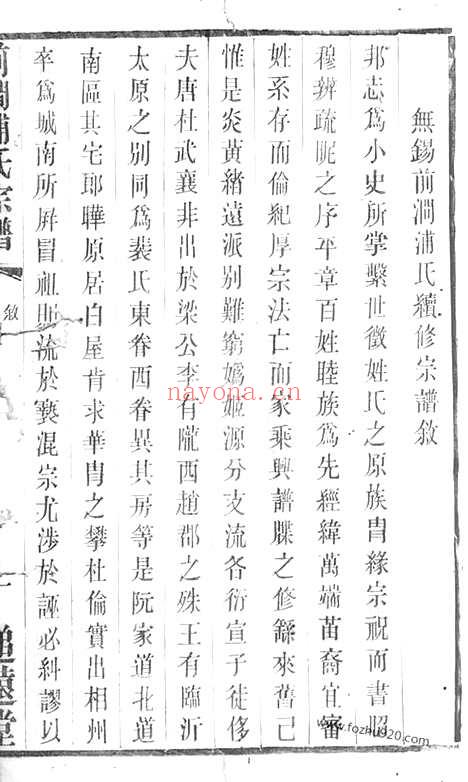 無錫前澗浦氏續修宗譜敘
邦志為小史所掌繫世徵姓氏之原族胄緣宗祝而書昭
穆辨疏昵之序平章百姓睦族為先經緯萬端苗裔宜審
姓系存而倫紀厚宗法亡而家乘興譜牒之修繇來舊已
惟是炎黃緒遠派別難窮媯姬源分支流各衍宣子徒侈
夫唐杜武襄非出於梁公李有隴西趙郡之殊王有臨沂
太原之別同為裴氏東眷西眷異其房等是阮家道北道
南區其宅郎曄原居白屋肯求華胄之攀杜倫實出相州
卒為城南所屏冒祖既流於褻混宗尤涉於誣必糾謬以
前澗浦氏宗譜
敘
一
追遠堂
nayona.cn
www.fozhu920.com